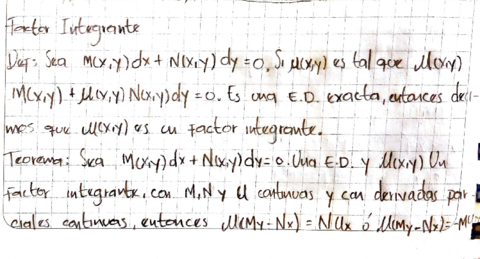 Factor Integrante
Def: Sea M(x,y)dx + N(x,y)dy = 0. Si μ(x,y) es tal que μ(x,y)
M(x,y) + μ(x,y) N(x,y)dy = 0. Es una E.D. exacta, entonces deci-
mos que μ(x,y) es un factor integrante.
Teorema: Sea M(x,y)dx + N(x,y)dy = 0. Una E.D. y μ(x,y) Un
factor integrante, con M, N y μ continuas y con derivadas par-
ciales continuas, entonces μ(My-Nx) = Nμx ó μ(My-Nx) = -Mμ